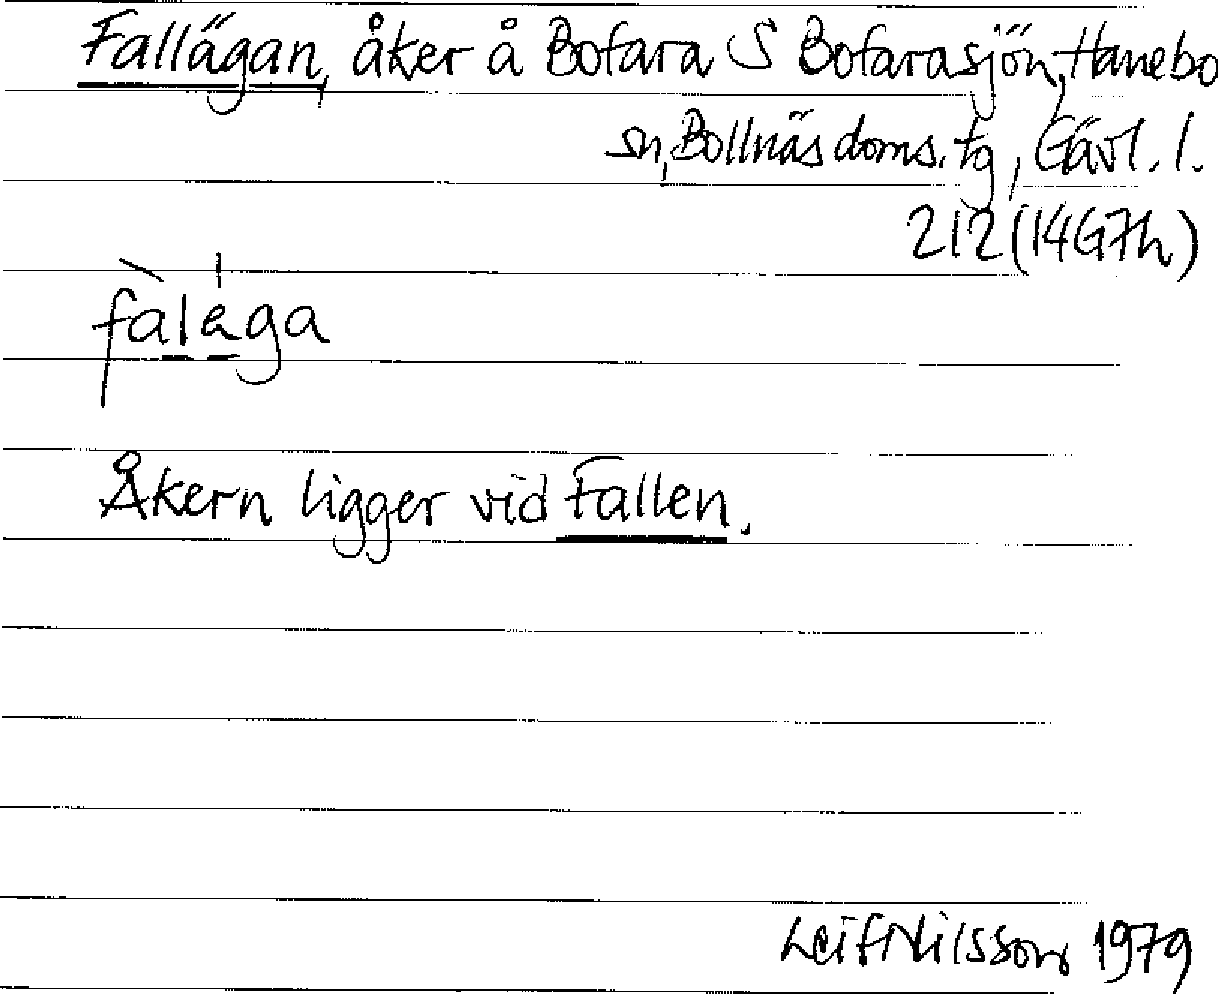 Fallägan, åker å Bofara S Bofarasjön, Hanebo
sn, Bollnäs doms. tg, Gävl. l.
212 (14G7h)
fàlǻga
Åkern ligger vid Fallen.
Leif Nilsson 1979